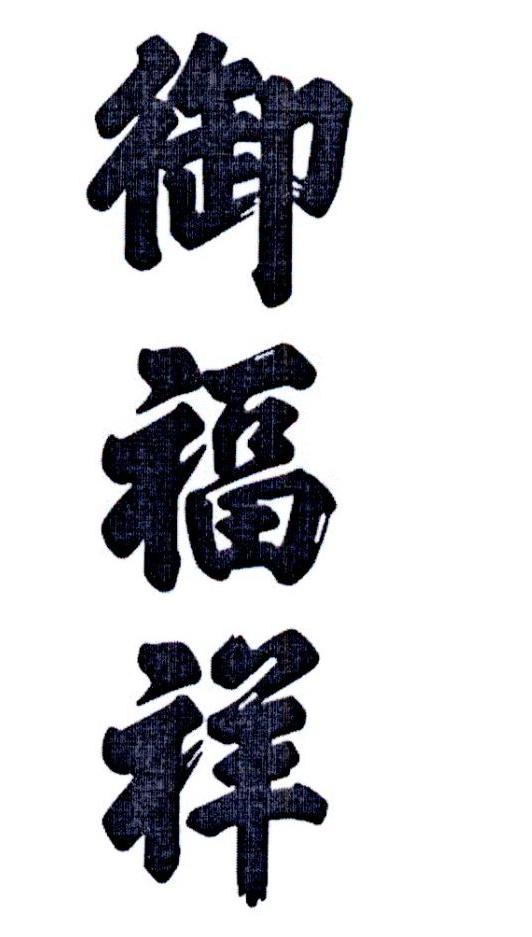 御福祥